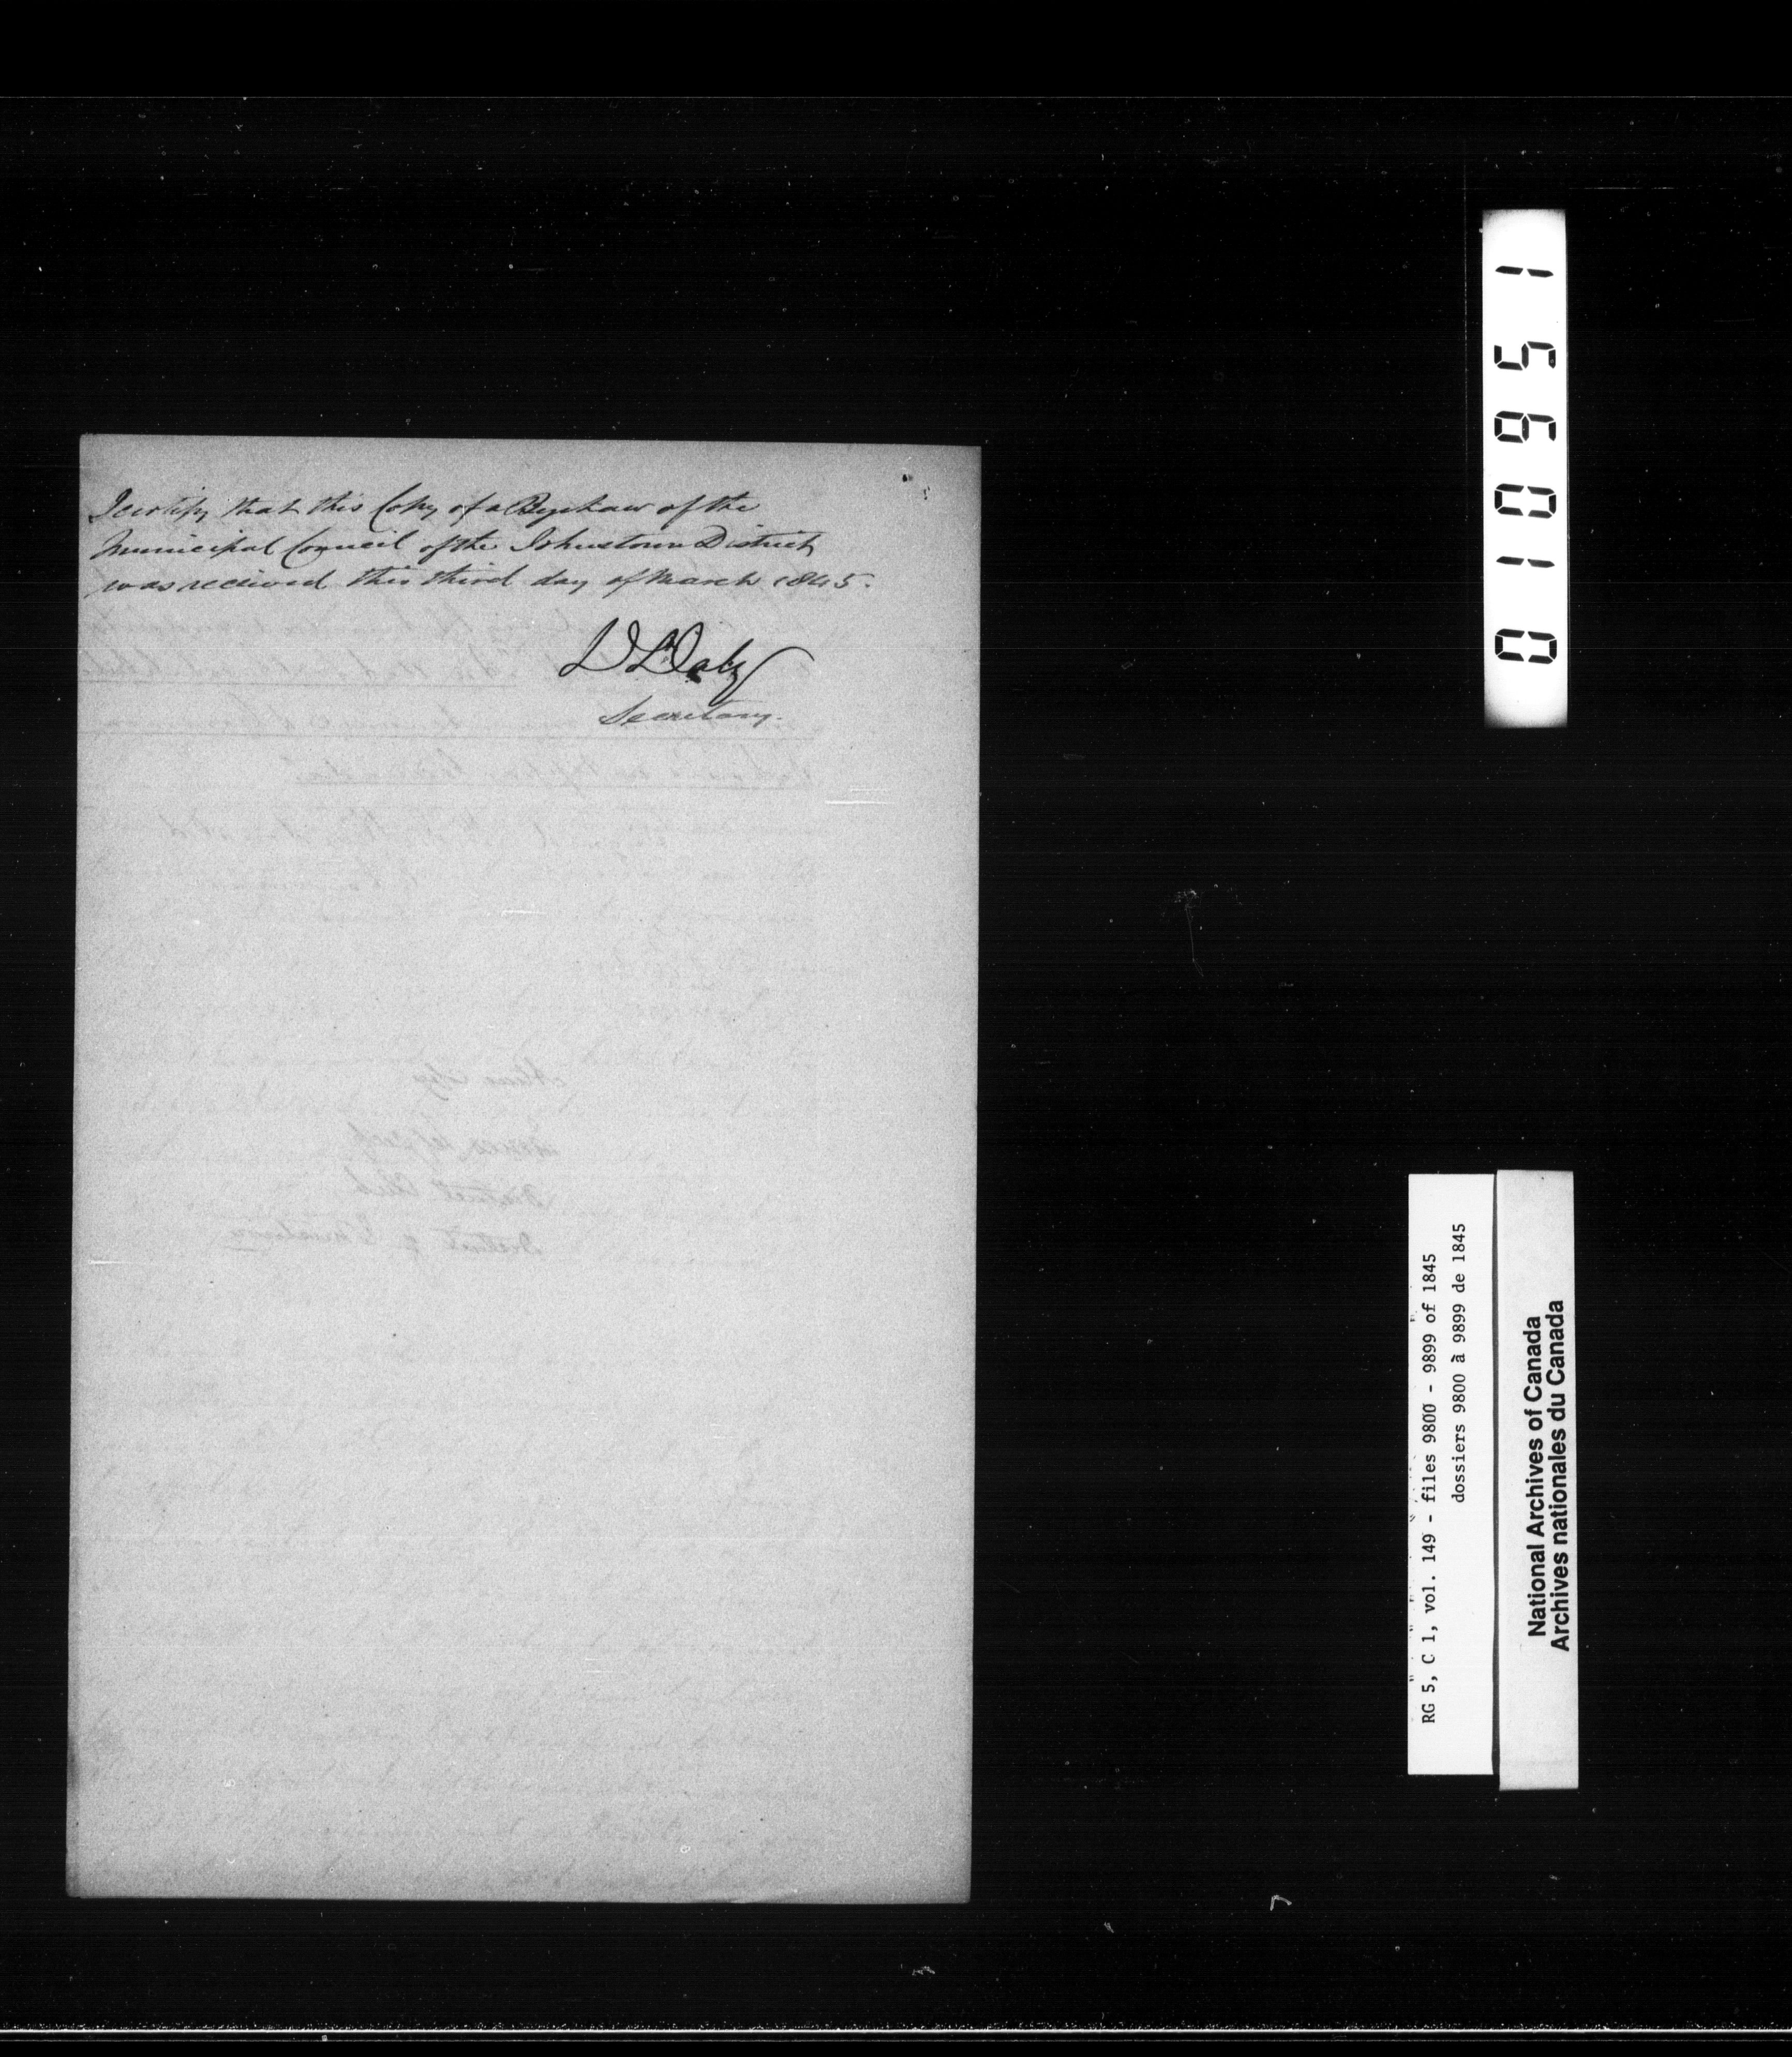 I certify that this Copy of a Bye Law of the
Municipal Council of the Johnstown District
was received this third day of March 1845.
D Daly
Secretary.
010951
RG 5, C 1, vol. 149 - files 9800 - 9899 of 1845
dossiers 9800 à 9899 de 1845
National Archives of Canada
Archives nationales du Canada